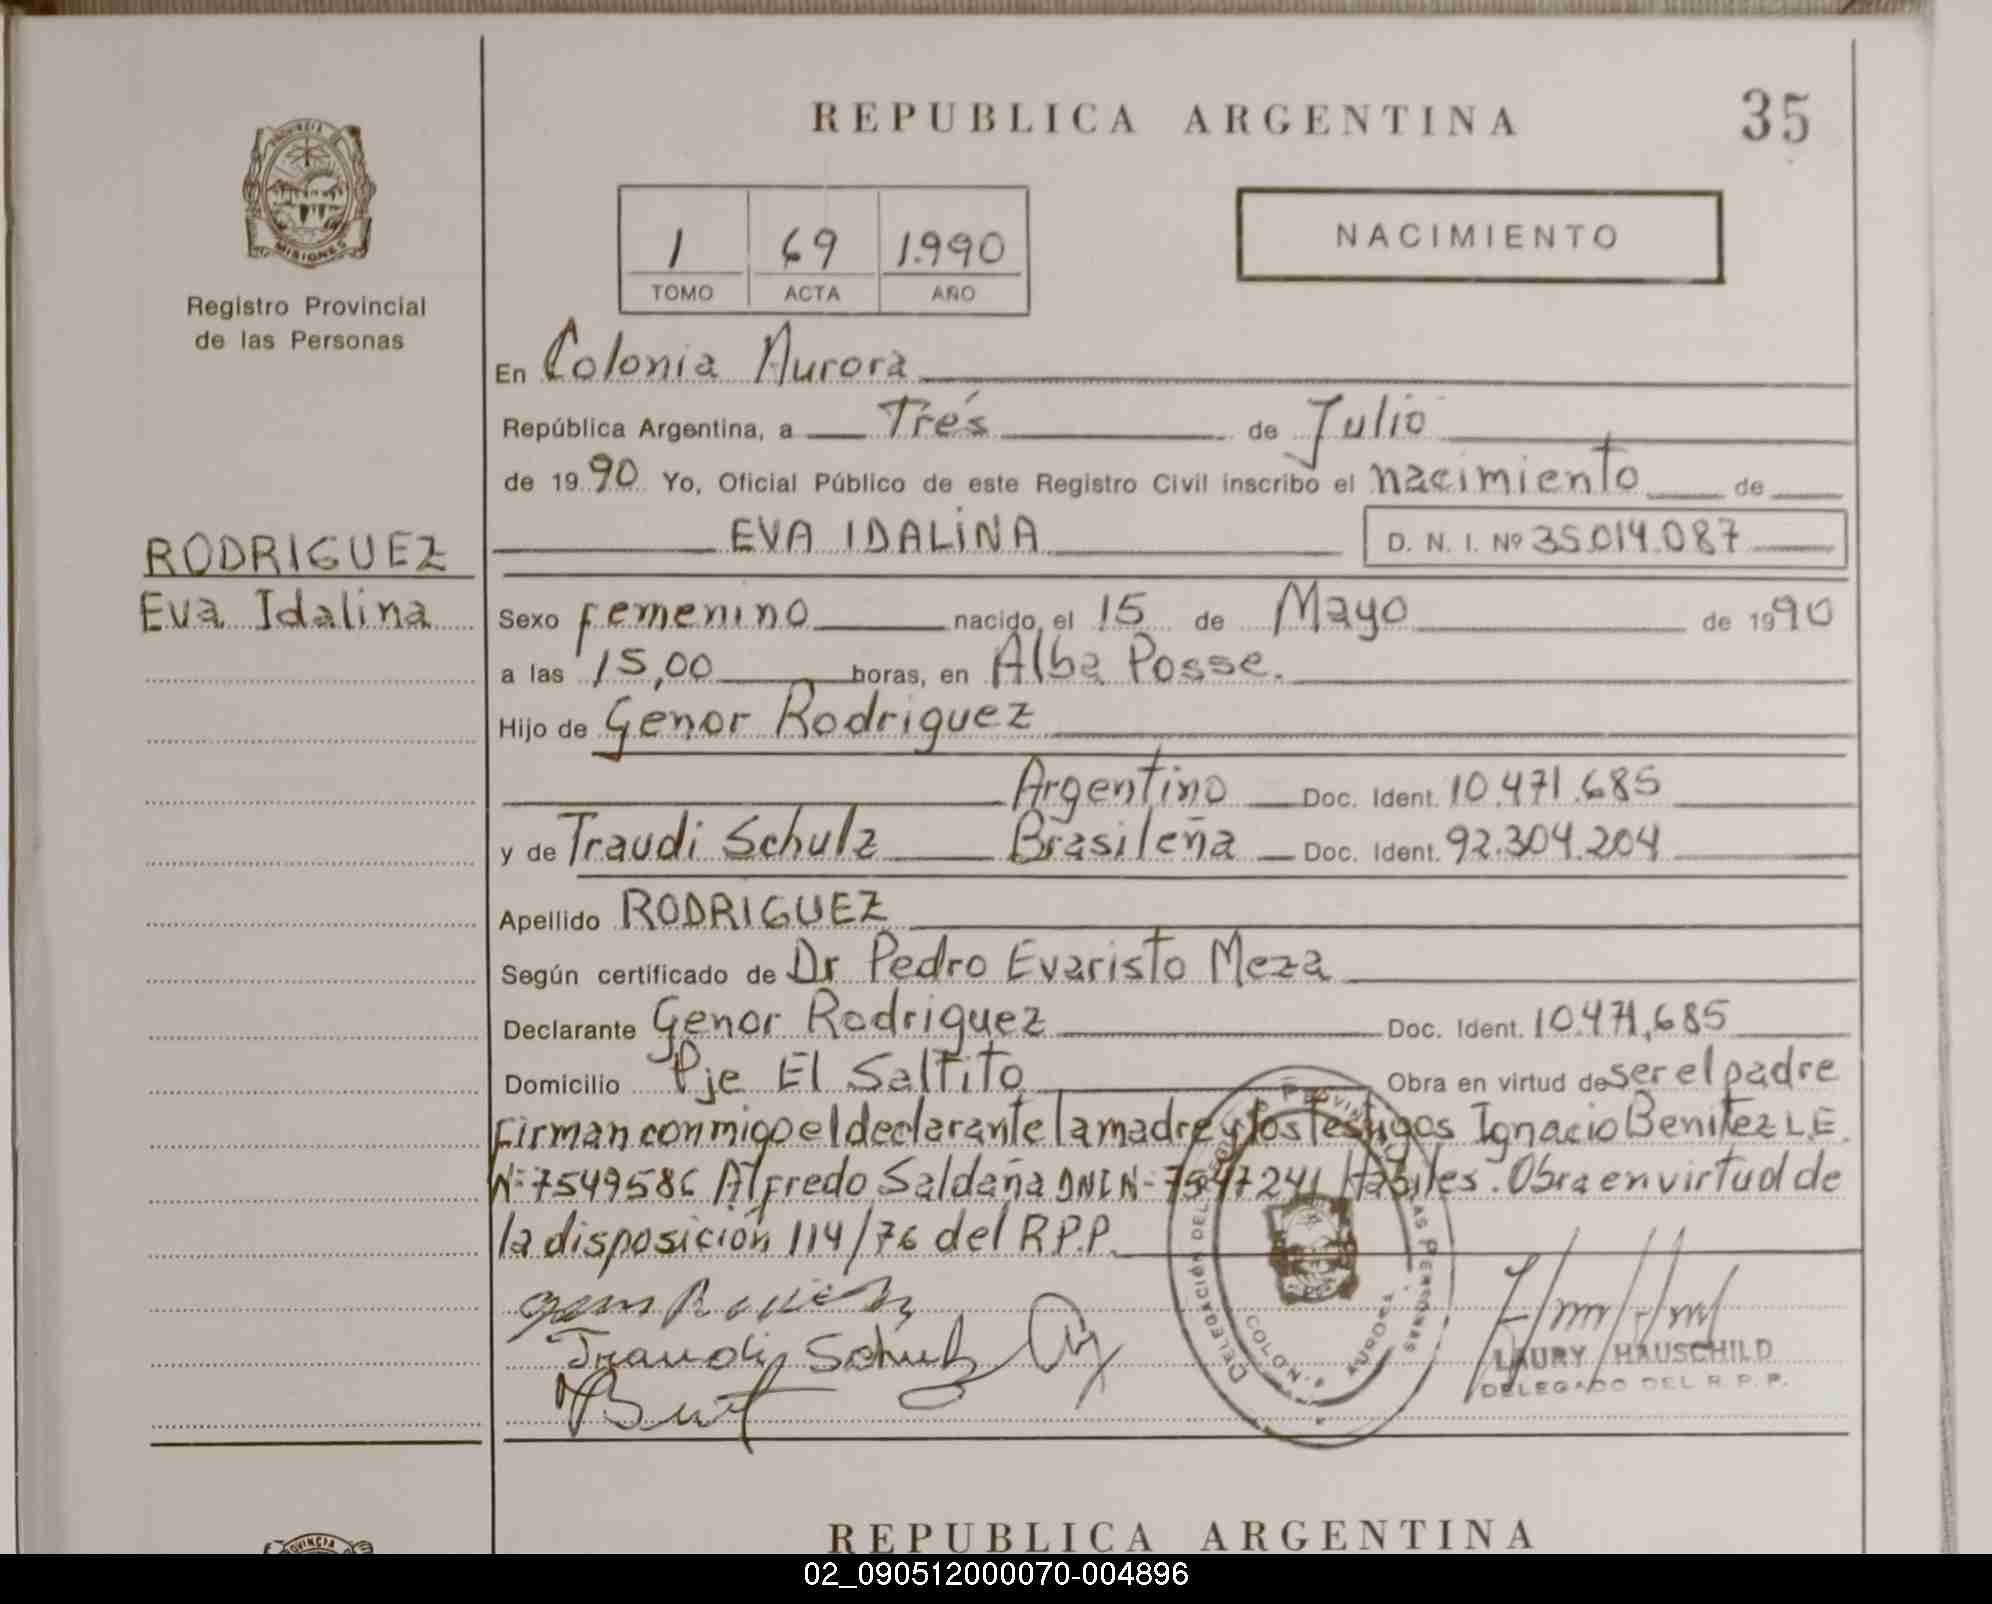 REPUBLICA ARGENTINA
35
PROVINCIA DE
MISIONES
Registro Provincial
de las Personas
1 69 1.990
TOMO ACTA AÑO
NACIMIENTO
En Colonia Aurora
República Argentina, a Trés de Julio
de 1990 Yo, Oficial Público de este Registro Civil inscribo el nacimiento de
EVA IDALINA D. N. I. Nº 35.014.087
RODRIGUEZ
Eva Idalina
Sexo femenino nacido el 15 de Mayo de 1990
a las 15,00 horas, en Alba Posse.
Hijo de Genor Rodriguez
Argentino Doc. Ident. 10.471.685
y de Traudi Schulz Brasileña Doc. Ident. 92.304.204
Apellido RODRIGUEZ
Según certificado de Dr Pedro Evaristo Meza
Declarante Genor Rodriguez Doc. Ident. 10.471,685
Domicilio Pje El Saltito Obra en virtud de ser el padre
Firman conmigo el declarante la madre y los testigos Ignacio Benitez L.E.
Nº 7549586 Alfredo Saldaña DNI N- 7547241 Habiles. Obra en virtud de
la disposición 114/76 del R.P.P.
Traudi Schulz
DELEGACIÓN DEL REGISTRO PROVINCIAL DE LAS PERSONAS
COLONIA AURORA
LAURY HAUSCHILD
DELEGADO DEL R. P. P.
PROVINCIA
REPUBLICA ARGENTINA
02_090512000070-004896